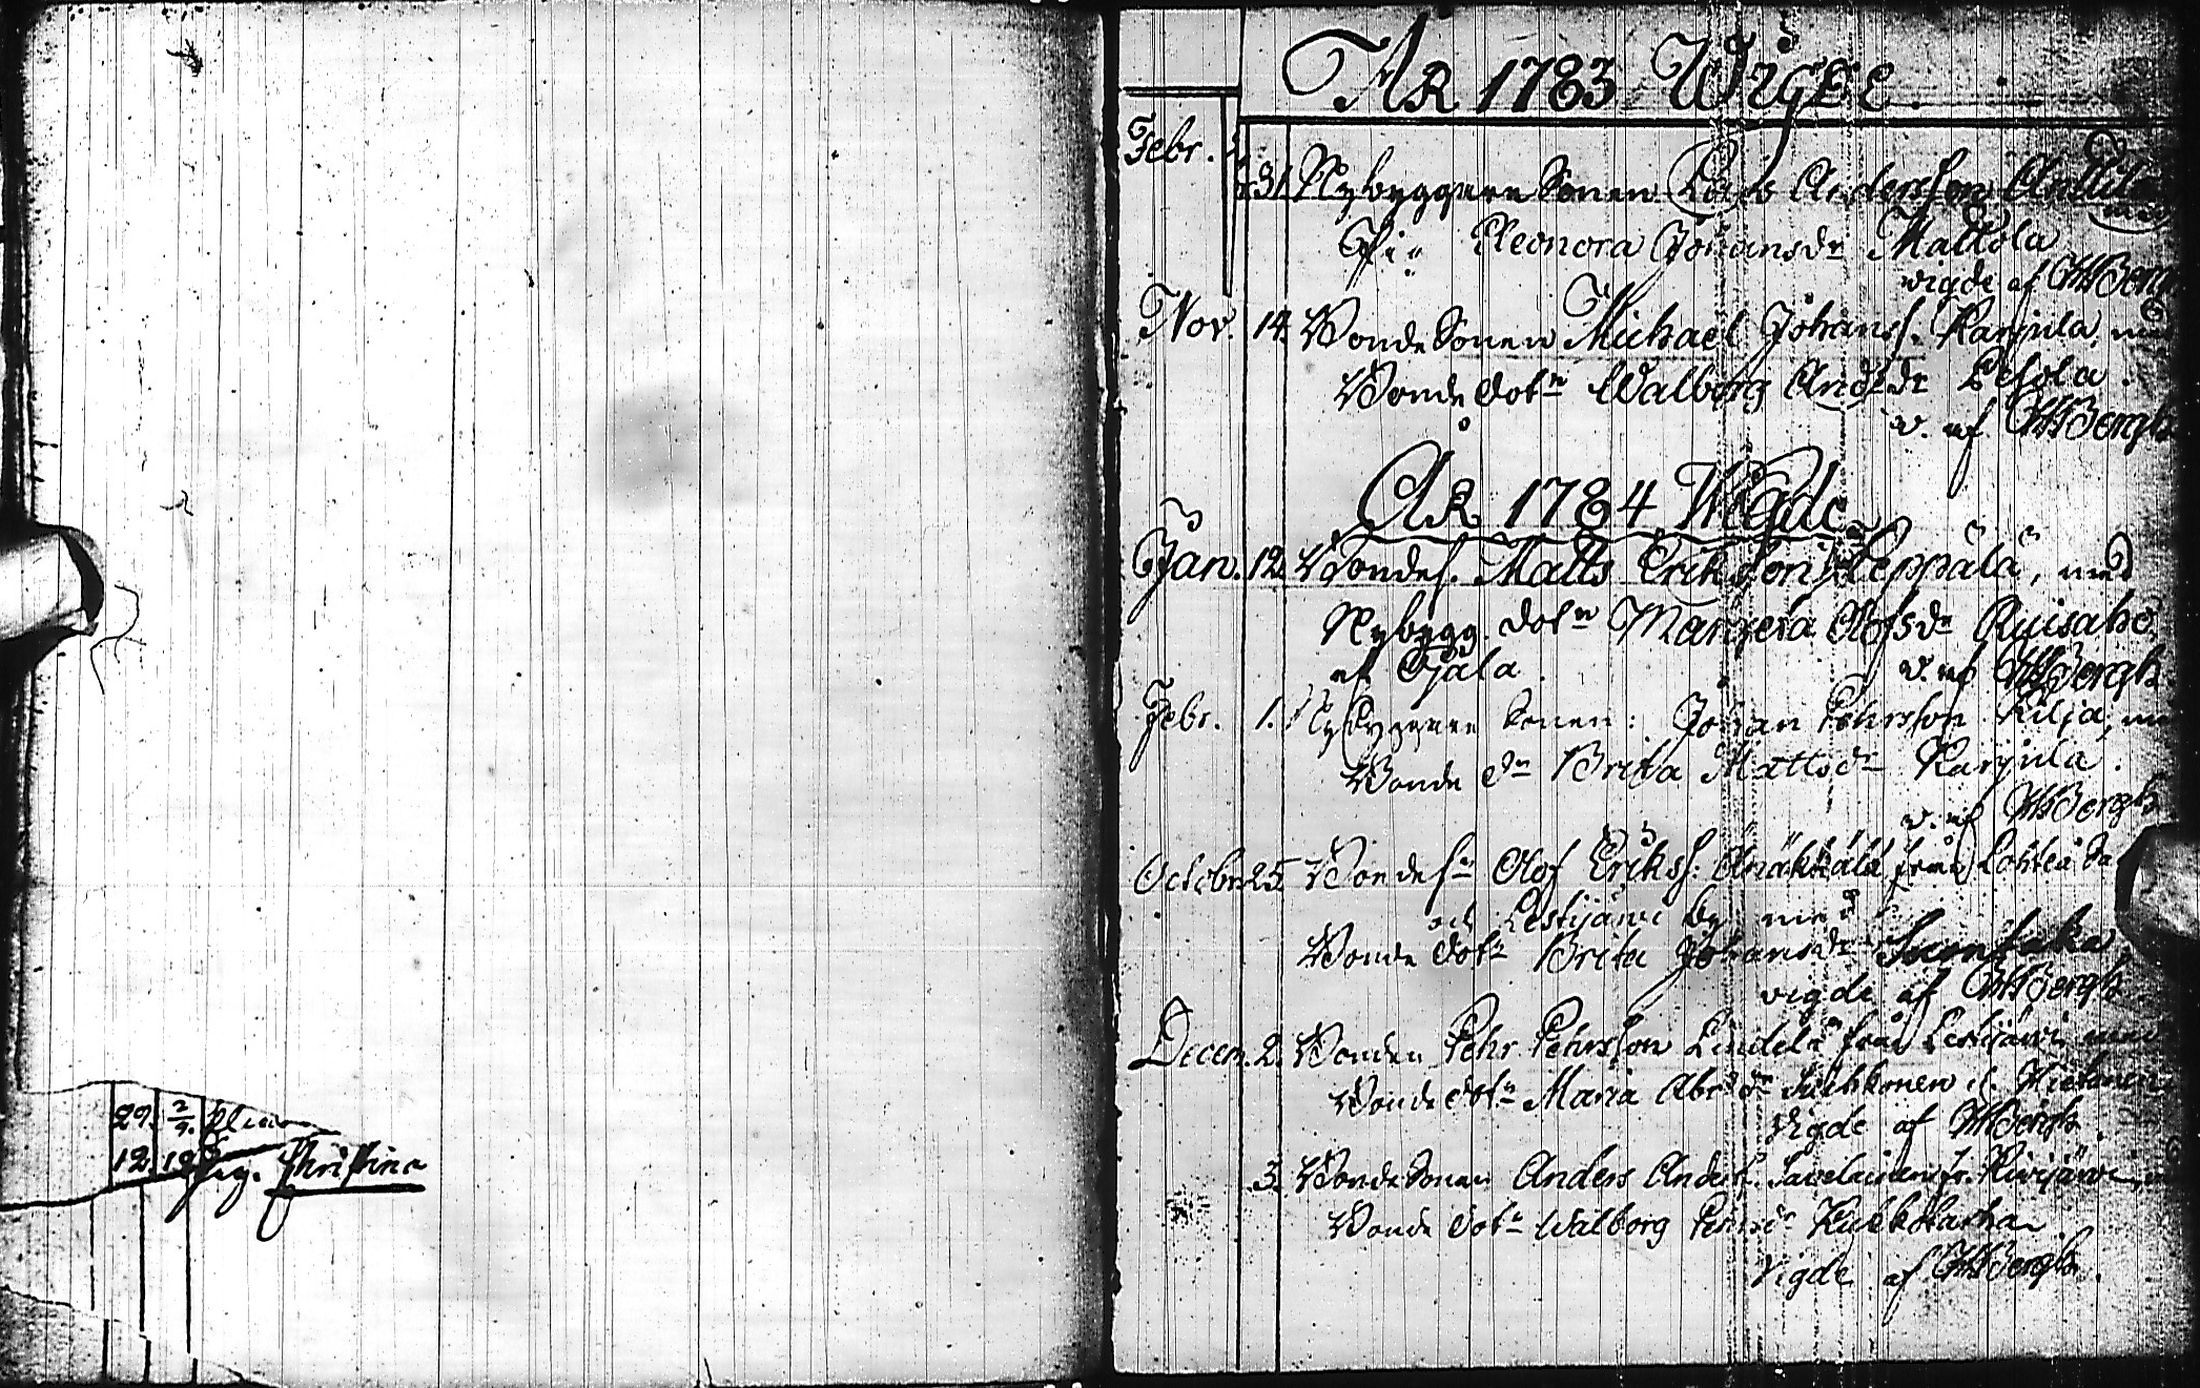 29. 2/9.
12. 19 Pig. Christina
ÅR 1783 Wigde.
Febr. Nybyggare Sonen Lars Andersson Anttila
Pi: Eleonora Johansdr Mattola
vigde af HHBergh
Nov. 14. Bonde Sonen Michael Johanss. Karjula, med
Bonde dotn Walborg Andsdr Pesola.
v. af HHBergh
ÅR 1784 Wigde
Jan. 12. Bondes. Matts Eriksson Leppälä, med
Nybygg. dotn Margeta Olofsdr Ruisaho
af Gjala. v. af HHBergh
Febr. 1. Nybyggare Sonen: Johan Pehrsson Kilja, me
Bonde dr Brita Mattsdr Karjula.
v. af HHBergh
October 25. Bonde sn Olof Erikss: Änäkkälä från Lohteå So
och Lestijärvi by med
Bonde dotn Brita Johansdr
vigde af HHBergh
Decem. 2. Bonden Pehr Pehrsson Lindelä från Lestijärvi med
Bonde dotn Maria Abrsdr
Vigde af HHBergh.
3. Bonde Sonen Anders Anders. fr. Kivijärvi,
Bonde dotn Walborg
Vigde af HHBergh.